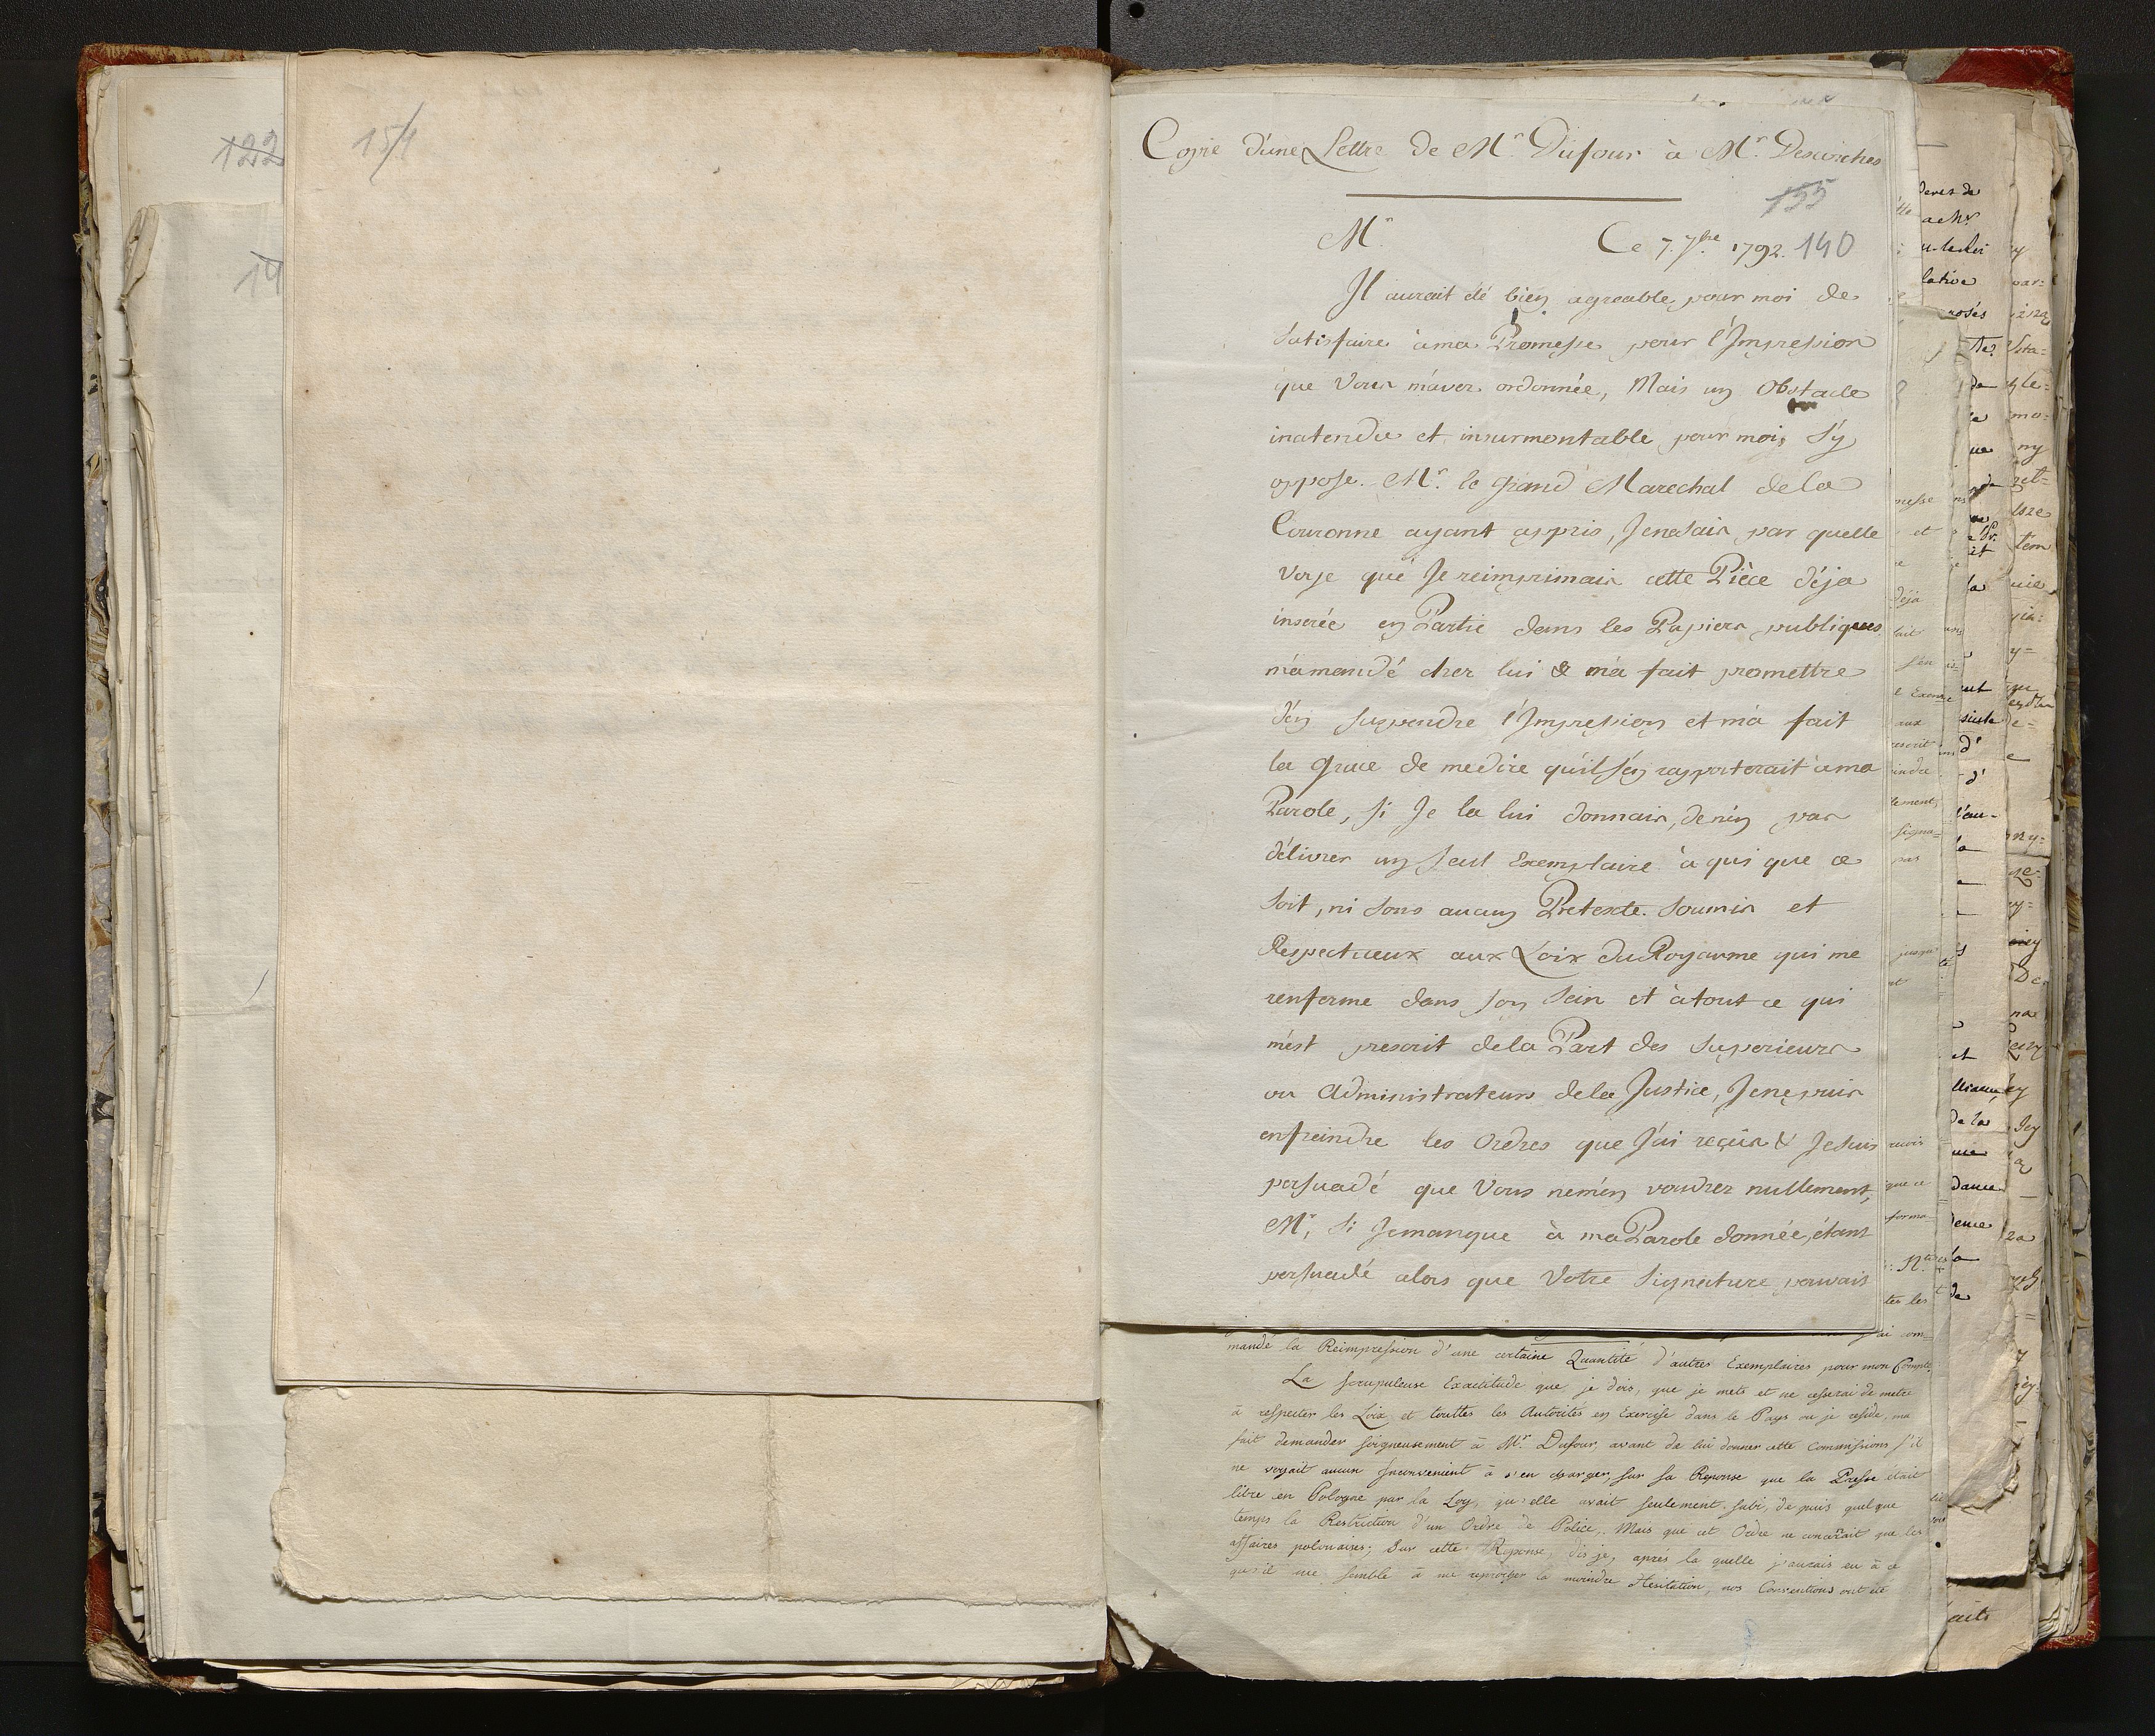 122
151
14
Copie d'une Lettre de Mr. Dufour à Mr. Descorches
155
Mr. Ce 7. 7bre. 1792. 140
Il aurait été bien agreable pour moi de
satisfaire à ma Promesse pour l'Impression
que Vous m'avez ordonnée, Mais un Obstacle
inatendu et insurmontable pour moi, s'y
oppose. Mr. le Grand Marechal de la
Couronne ayant appris, Je ne sais, par quelle
Voye que Je reimprimais cette Pièce déja
inserée en Partie dans les Papiers publiques
m'a mandé chez lui & m'a fait promettre
d'en suspendre l'Impression et m'a fait
la Grace de me dire qu'il s'en rapporterait à ma
Parole, si Je la lui donnais, de n'en pas
délivrer un seul Exemplaire à qui que ce
soit, ni sous aucun Pretexte. Soumis et
Respectueux aux Loix du Royaume qui me
renferme dans son Sein et à tout ce qui
m'est prescrit de la Part des Superieurs
ou Administrateurs de la Justice, Je ne puis
enfreindre les Ordres que J'ai reçûs & Je suis
persuadé que Vous ne m'en voudrez nullement,
Mr, si Je manque à ma Parole donnée, étant
persuadé alors que Votre Signature pouvais
mandé la Reimpression d'une certaine Quantité d'autres Exemplaires pour mon Compte.
La scrupuleuse Exactitude que je dois, que je mets et ne cesserai de metre
à respecter les Loix et touttes les Autorités en Exercise dans le Pays ou je reside, ma
fait demander soigneusement à Mr. Dufour, avant de lui donner cette Commissions s'il
ne voyait aucun Inconvenient à s'en charger, sur sa Reponse que la Presse était
libre en Pologne par la Loy, qu'elle avait seulement subi, de puis quelque
temps la Restriction d'un Ordre de Police, Mais que cet Ordre ne concernait que les
affaires polonaises; Sur cette Reponse, dis je, aprés la quelle j'aurais eu à ce
qu'il me semble à me reprocher la moindre Hesitation, nos Conventions ont été